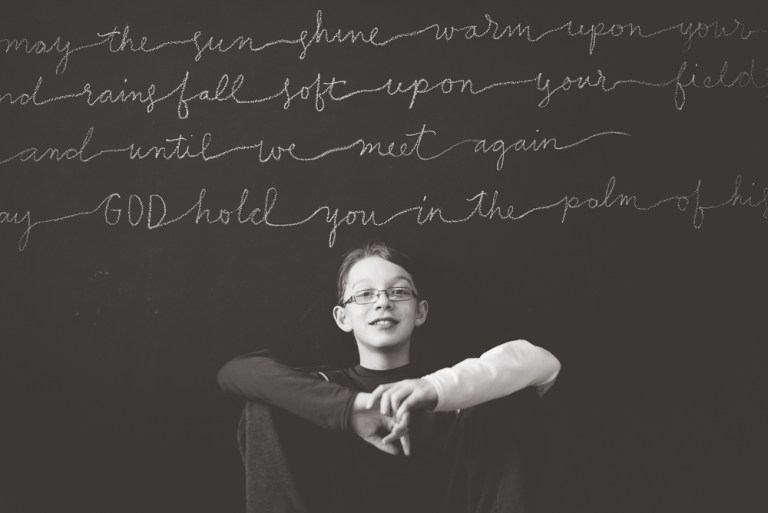 may the sun shine warm upon your
nd rains fall soft upon your field
and until we meet again
ay GOD hold you in the palm of his